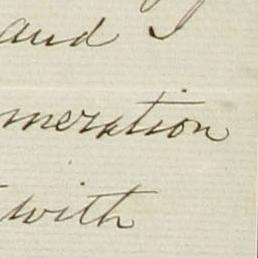 and I
meration
with